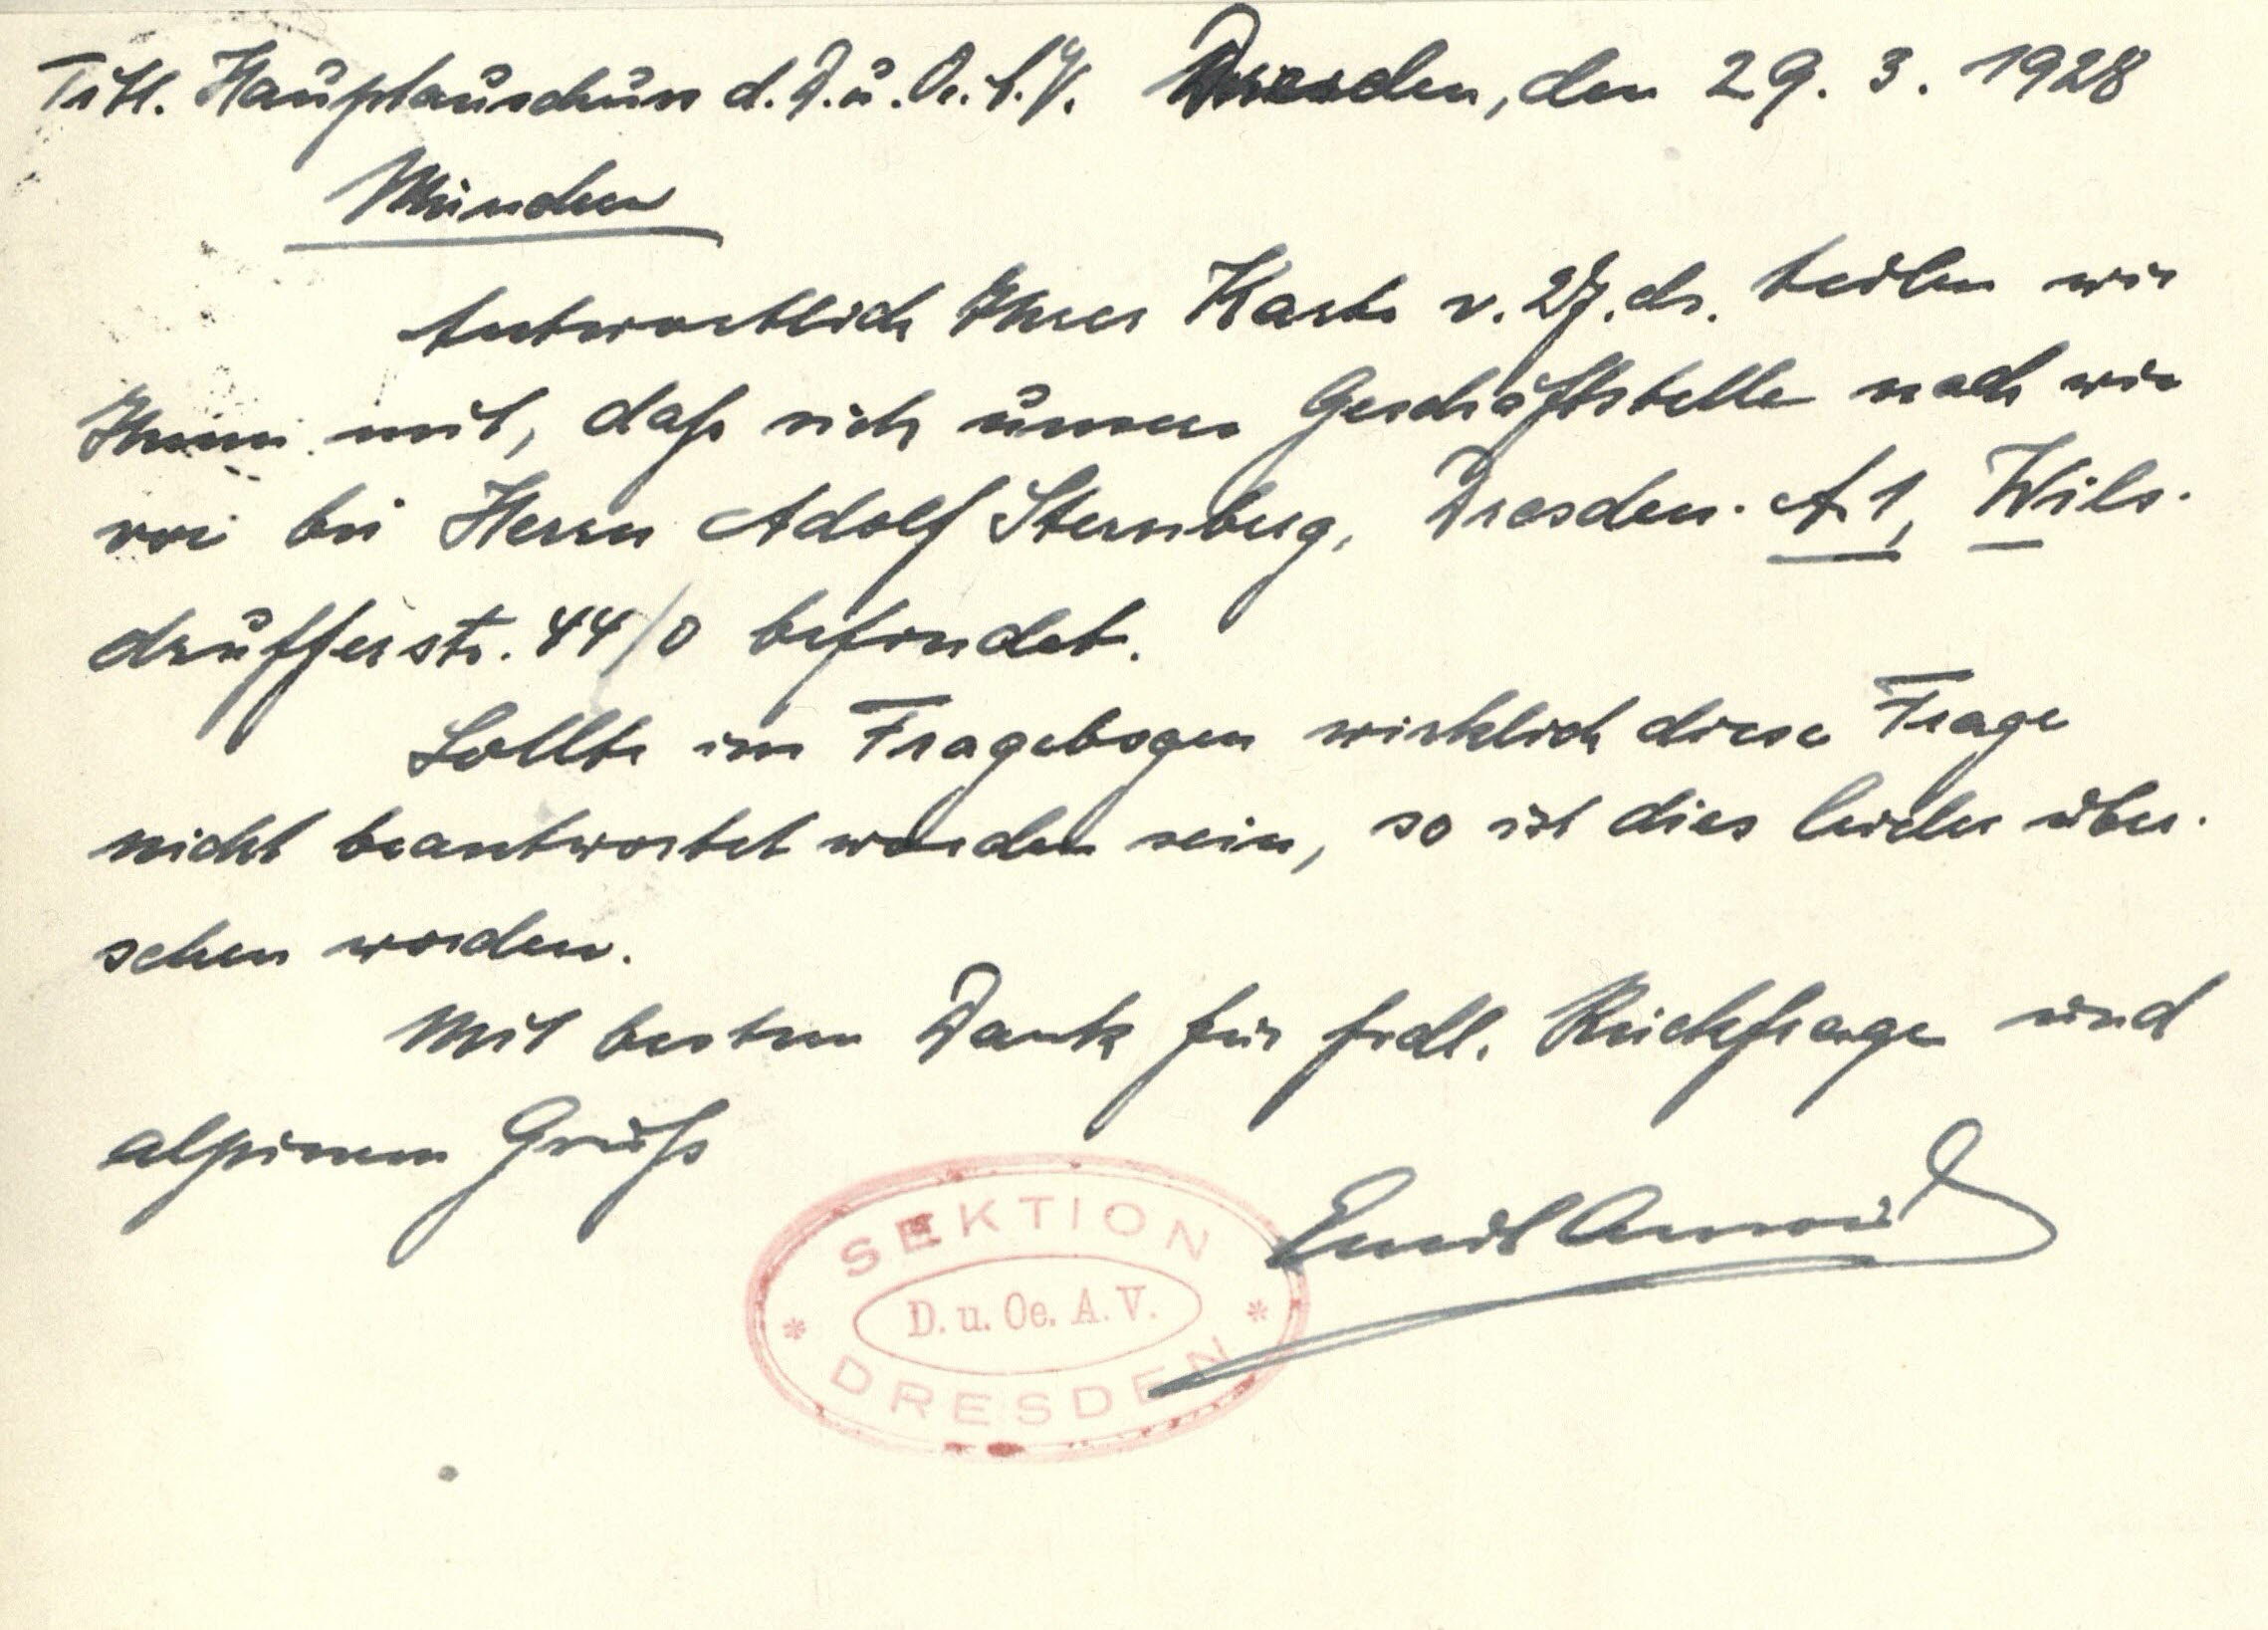 Titl. Hauptausschuss d. D. u. Oe. A. V. Dresden, den 29. 3. 1928
München
Antwortlich Ihrer Karte v. 27. ds. teilen wir
Ihnen mit, daß sich unsere Geschäftsstelle nach wie
vor bei Herrn Adolf Sternberg, Dresden-A 1, Wils-
drufferstr. 44/0 befindet.
Sollte im Fragebogen wirklich diese Frage
nicht beantwortet worden sein, so ist dies leider über-
sehen worden.
Mit bestem Dank für frdl. Rückfrage und
alpinem Gruß
Emil
SEKTION
D. u. Oe. A. V.
DRESDEN